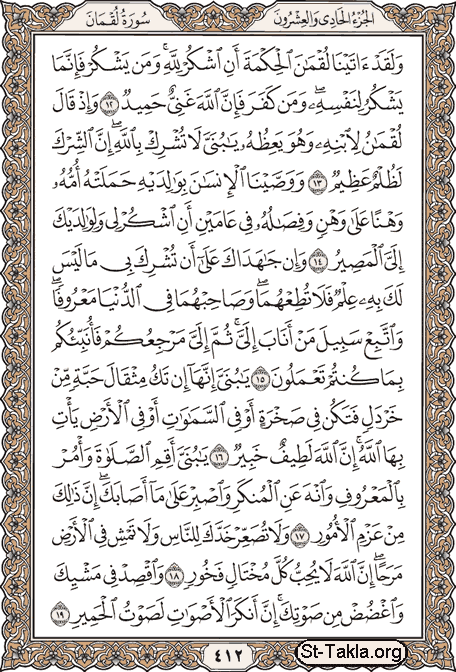 سُورَةُ لُقْمَانَ
الجُزْءُ الحَادِى وَالعِشْرُونَ
وَلَقَدْ ءَاتَيْنَا لُقْمَٰنَ ٱلْحِكْمَةَ أَنِ ٱشْكُرْ لِلَّهِۚ وَمَن يَشْكُرْ فَإِنَّمَا
يَشْكُرُ لِنَفْسِهِۦۖ وَمَن كَفَرَ فَإِنَّ ٱللَّهَ غَنِىٌّ حَمِيدٌ ١٢ وَإِذْ قَالَ
لُقْمَٰنُ لِٱبْنِهِۦ وَهُوَ يَعِظُهُۥ يَٰبُنَىَّ لَا تُشْرِكْ بِٱللَّهِۖ إِنَّ ٱلشِّرْكَ
لَظُلْمٌ عَظِيمٌ ١٣ وَوَصَّيْنَا ٱلْإِنسَٰنَ بِوَٰلِدَيْهِ حَمَلَتْهُ أُمُّهُۥ
وَهْنًا عَلَىٰ وَهْنٍ وَفِصَٰلُهُۥ فِى عَامَيْنِ أَنِ ٱشْكُرْ لِى وَلِوَٰلِدَيْكَ
إِلَىَّ ٱلْمَصِيرُ ١٤ وَإِن جَٰهَدَاكَ عَلَىٰٓ أَن تُشْرِكَ بِى مَا لَيْسَ
لَكَ بِهِۦ عِلْمٌ فَلَا تُطِعْهُمَاۖ وَصَاحِبْهُمَا فِى ٱلدُّنْيَا مَعْرُوفًاۖ
وَٱتَّبِعْ سَبِيلَ مَنْ أَنَابَ إِلَىَّۚ ثُمَّ إِلَىَّ مَرْجِعُكُمْ فَأُنَبِّئُكُم
بِمَا كُنتُمْ تَعْمَلُونَ ١٥ يَٰبُنَىَّ إِنَّهَآ إِن تَكُ مِثْقَالَ حَبَّةٍ مِّنْ
خَرْدَلٍ فَتَكُن فِى صَخْرَةٍ أَوْ فِى ٱلسَّمَٰوَٰتِ أَوْ فِى ٱلْأَرْضِ يَأْتِ
بِهَا ٱللَّهُۚ إِنَّ ٱللَّهَ لَطِيفٌ خَبِيرٌ ١٦ يَٰبُنَىَّ أَقِمِ ٱلصَّلَوٰةَ وَأْمُرْ
بِٱلْمَعْرُوفِ وَٱنْهَ عَنِ ٱلْمُنكَرِ وَٱصْبِرْ عَلَىٰ مَآ أَصَابَكَۖ إِنَّ ذَٰلِكَ
مِنْ عَزْمِ ٱلْأُمُورِ ١٧ وَلَا تُصَعِّرْ خَدَّكَ لِلنَّاسِ وَلَا تَمْشِ فِى ٱلْأَرْضِ
مَرَحًاۖ إِنَّ ٱللَّهَ لَا يُحِبُّ كُلَّ مُخْتَالٍ فَخُورٍ ١٨ وَٱقْصِدْ فِى مَشْيِكَ
وَٱغْضُضْ مِن صَوْتِكَۚ إِنَّ أَنكَرَ ٱلْأَصْوَٰتِ لَصَوْتُ ٱلْحَمِيرِ ١٩
٤١٢
St-Takla.org